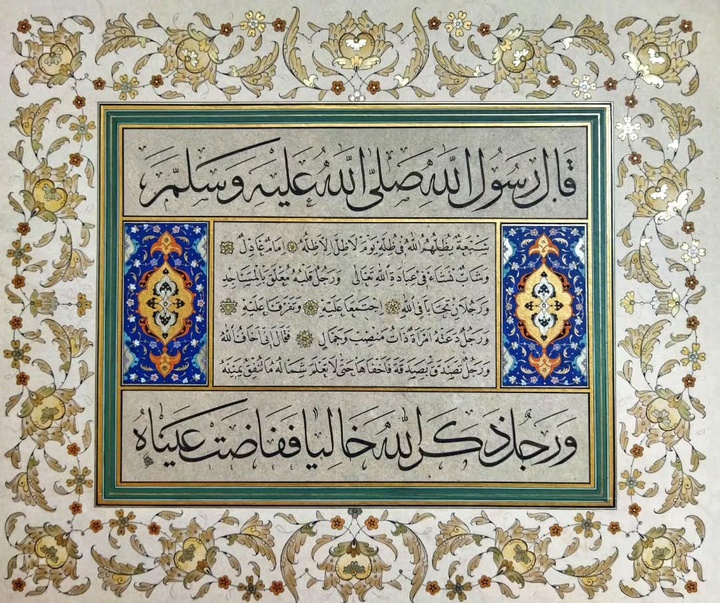 قال رسول الله صلى الله عليه وسلم
سبعة يظلهم الله في ظله يوم لا ظل إلا ظله إمام عادل
وشاب نشأ في عبادة الله تعالى ورجل قلبه معلق بالمساجد
ورجلان تحابا في الله اجتمعا عليه وتفرقا عليه
ورجل دعته امرأة ذات منصب وجمال فقال إني أخاف الله
ورجل تصدق بصدقة فأخفاها حتى لا تعلم شماله ما تنفق يمينه
ورجل ذكر الله خاليا ففاضت عيناه